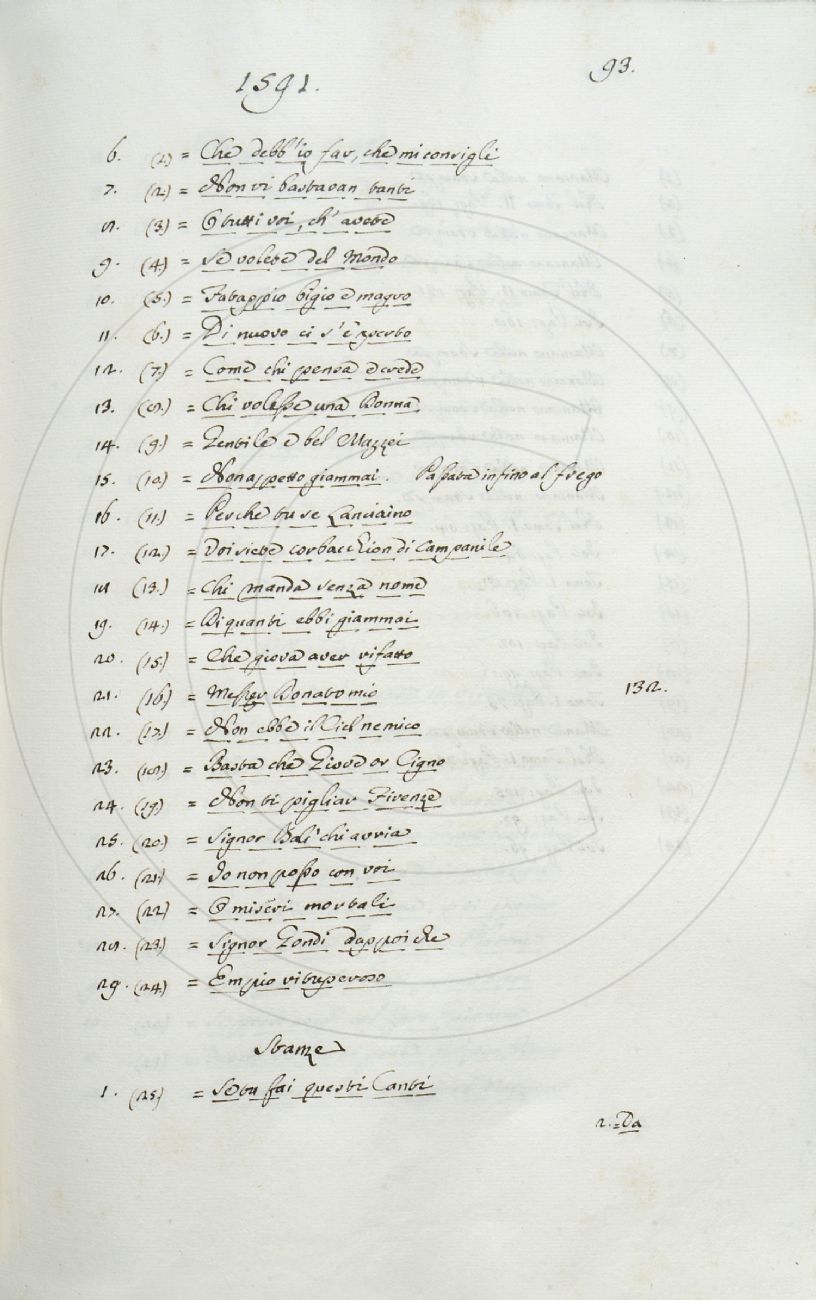 1591.
93.
6. (1.) = Che debb'io far, che mi consigli
7. (2.) = Non vi bastavan tanti
8. (3.) = O tutti voi, ch'avete
9. (4.) = Se volete del Mondo
10. (5.) = Fatappio bigio e magro
11. (6.) = Di nuovo ci s'è
12. (7.) = Come chi pensa e crede
13. (8.) = Chi volesse una Donna.
14. (9.) = Gentile e bel Mazzei
15. (10.) = Non aspetto giammai. Passata infino al frego
16. (11.) = Perche tu se Lanciaino
17. (12.) = Voi siete corbacchion di Campanile
18 (13.) = Chi manda senza nome
19. (14.) = Di quanti ebbi giammai
20. (15.) = Che giova aver rifatto
21. (16.) = Messer Donato mio 132.
22. (17.) = Non ebbe il Ciel nemico
23. (18.) = Basta che Giove or Cigno
24. (19.) = Non ti pigliar Firenze
25. (20.) = Signor Balì chi avria
26. (21.) = Io non posso con voi
27. (22) = O miseri mortali
28. (23.) = Signor Gondi dappoi che
29. (24) = Empio vituperoso
Stanze
1. (25) = Se tu fai questi Canti
2. = Da